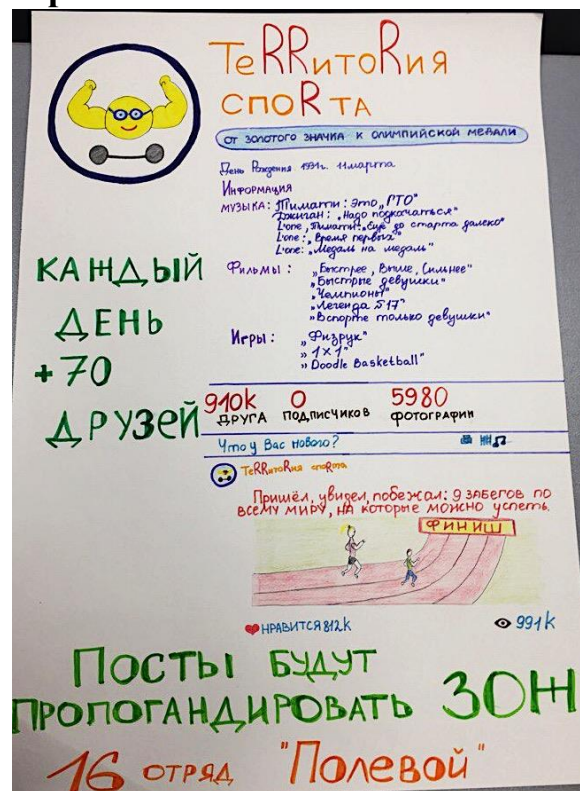 ТеRRитоRия
споRта
от золотого значка к олимпийской медали
День Рождения 1931г. 11 марта
Информация
музыка: Тимати: Это „ГТО"
Джиган: „Надо подкачаться"
L'one, Тимати: „Еще до старта далеко"
L'one: „Время первых"
L'one: „Медаль на медаль"
Фильмы: „Быстрее, Выше, Сильнее"
„Быстрые девушки"
„Чемпионы"
„Легенда №17"
„В спорте только девушки"
Игры: „Физрук"
„1×1"
„Doodle Basketball"
КАЖДЫЙ
ДЕНЬ
+70
ДРУЗЕЙ
910k 0 5980
друга подписчиков фотографии
Что у Вас нового?
ТеRRитоRия споRта
Пришёл, увидел, побежал: 9 забегов по
всему миру, на которые можно успеть.
ФИНИШ
НРАВИТСЯ 812k 991k
Посты будут
пропогандировать ЗОЖ
16 отряд "Полевой"